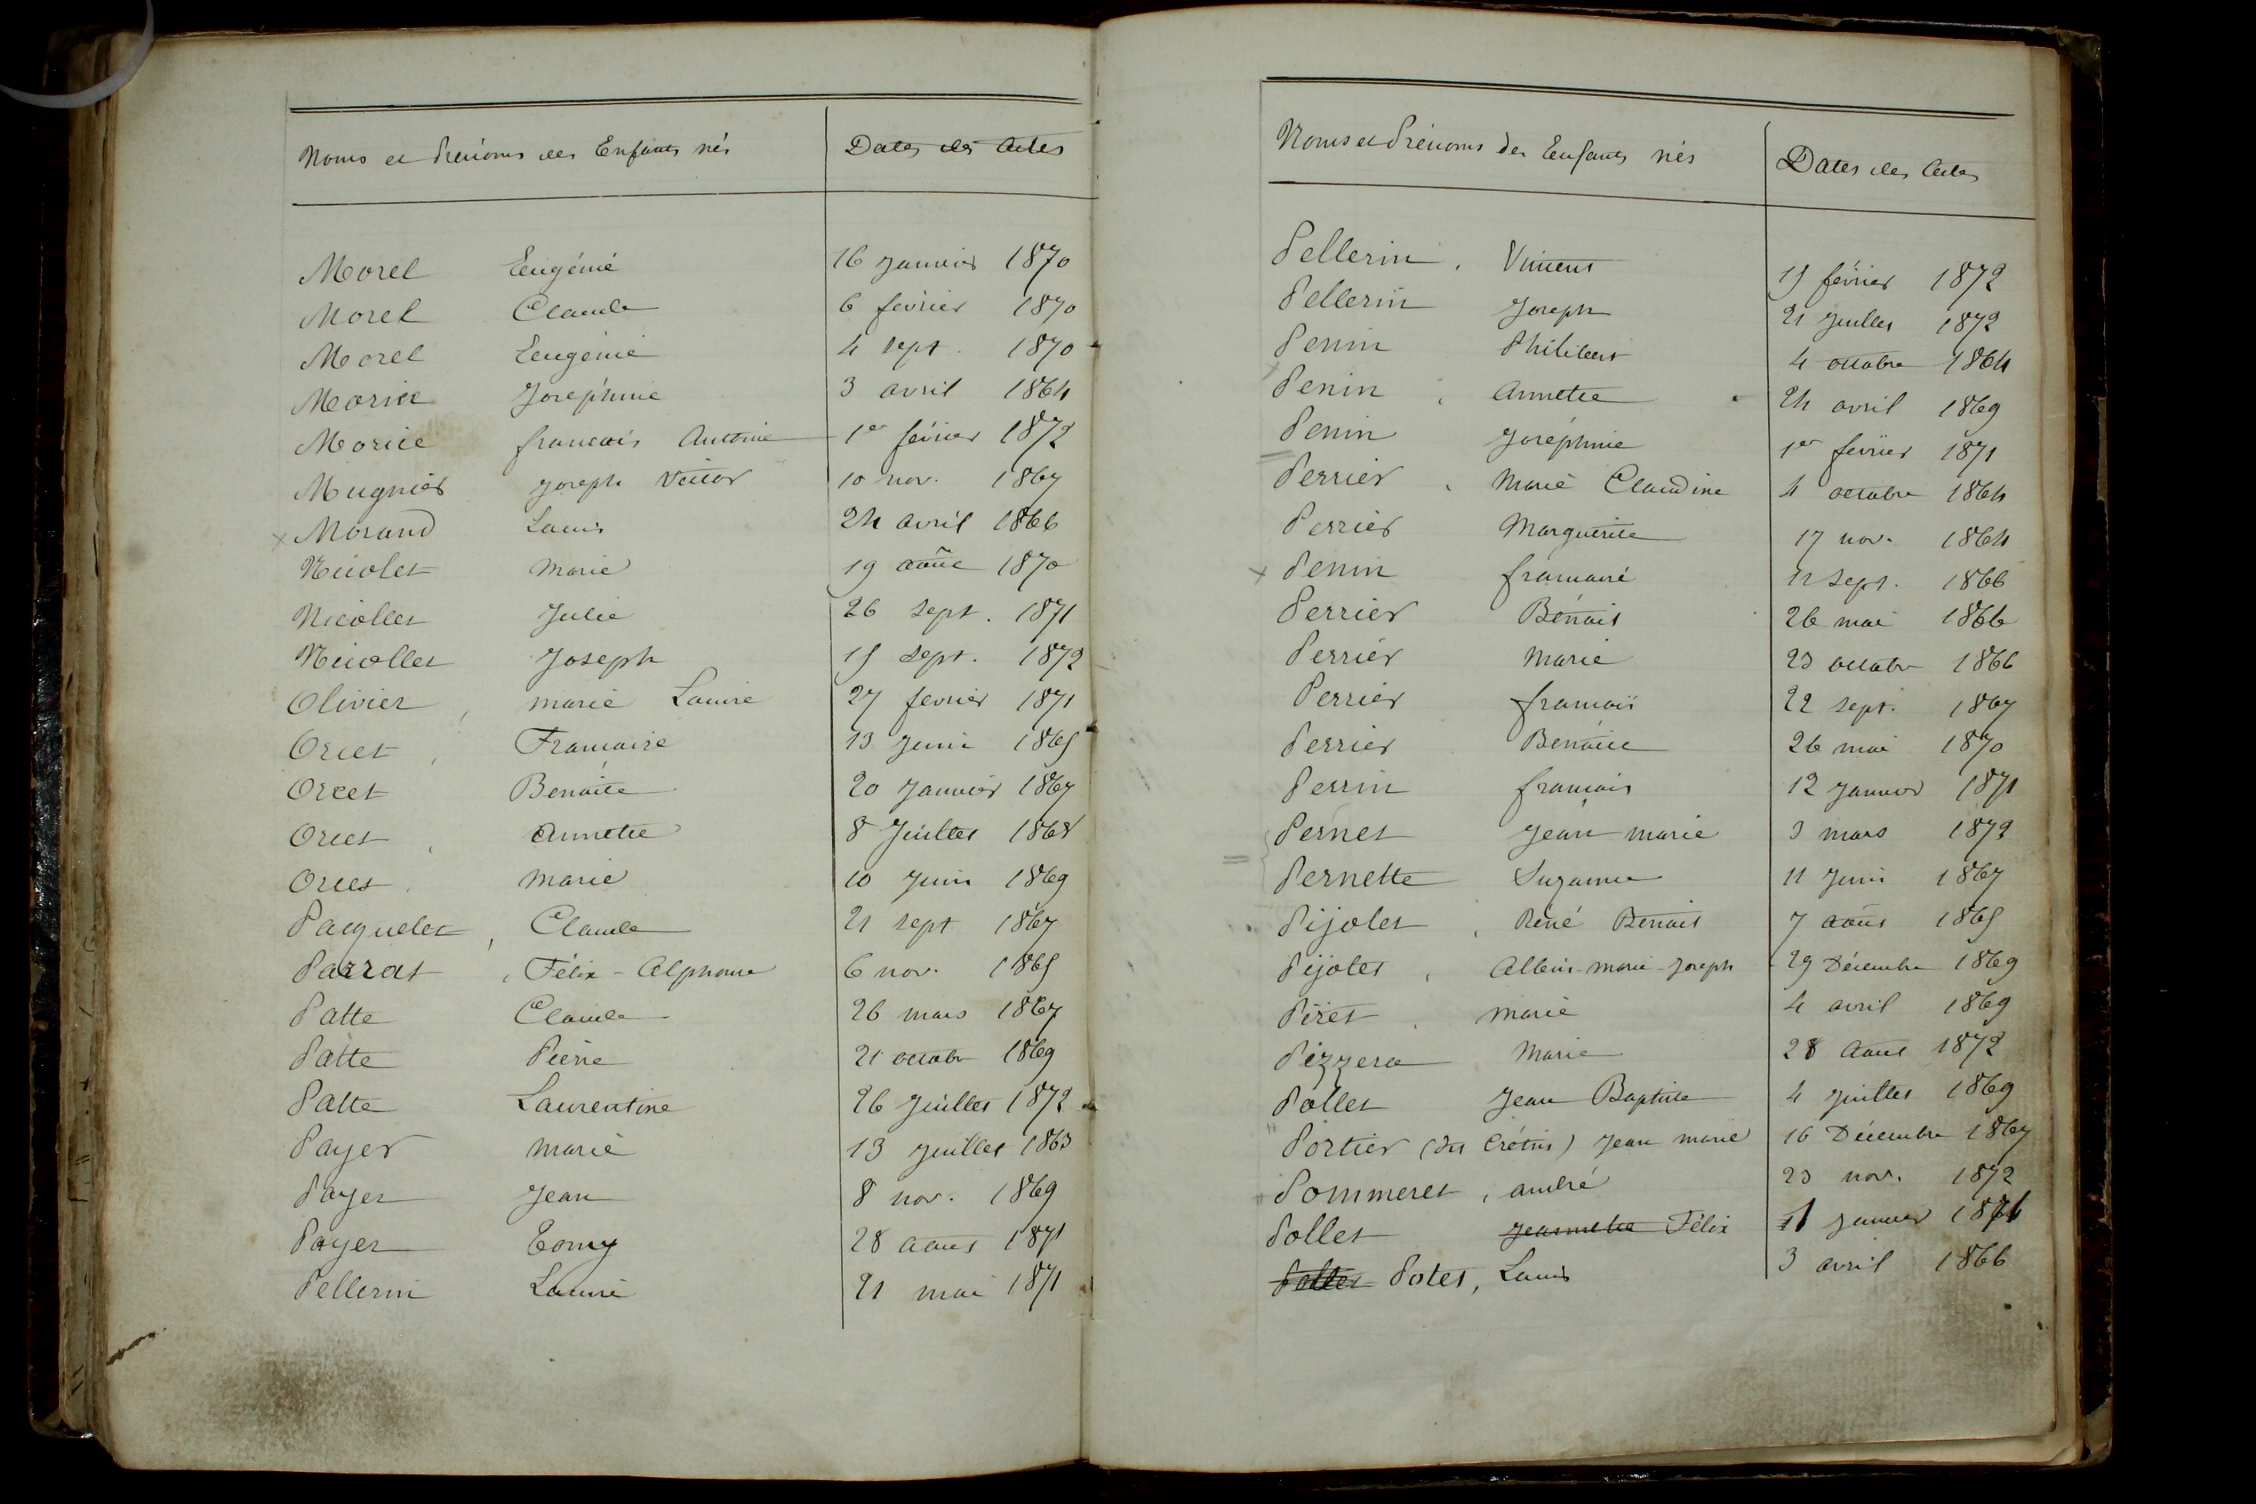 Noms et Prénoms des Enfants nés Dates des Actes
Morel Eugénie 16 Janvier 1870
Morel Claude 6 février 1870
Morel Eugénie 4 sept. 1870
Morice Joséphine 3 avril 1864
Morice francois Antoine 1er février 1872
Mugnier Joseph Victor 10 nov. 1867
x Morand Louis 24 avril 1866
Nicolet Marie 19 août 1870
Nicollet Julie 26 sept. 1871
Nicollet Joseph 15 sept. 1872
Olivier, marie Louise 27 fevrier 1871
Orcet, Francoise 13 Juin 1865
Orcet Benoite 20 Janvier 1867
Orcet, Annette 8 Juillet 1868
Orcet. Marie 10 Juin 1869
Pacquelet, Claude 21 sept 1867
Parrat, Félix-Alphonse 6 nov. 1865
Patte Claude 26 mars 1867
Patte Pierre 21 octobr 1869
Patte Laurentine 26 Juillet 1872
Payer Marie 13 Juillet 1863
Payer Jean 8 nov. 1869
Payer Tony 28 aout 1871
Pellerin Louise 21 mai 1871
Noms et Prénoms des Enfants nés Dates des Actes
Pellerin. Vincent 15 février 1872
Pellerin Joseph 21 Juillet 1872
Penin Philibert 4 octobre 1864
Penin, Annette 24 avril 1869
Penin Joséphine 1er février 1871
Perrier, Marie Claudine 4 octobre 1864
Perrier Marguerite 17 nov. 1864
x Penin francoise 11 sept. 1866
Perrier Benoit 26 mai 1866
Perrier Marie 23 octobr 1866
Perrier francois 22 sept. 1867
Perrier Benoite 26 mai 1870
Perrin francois 12 Janvier 1871
Pernet Jean marie 3 mars 1872
Pernette Suzanne 11 Juin 1867
Pijolet, René Benoit 7 août 1865
Pijolet, Albert-Marie-Joseph 29 Décembre 1869
Piret. Marie 4 avril 1869
Pizzera Marie 28 Aout 1872
Pollet Jean Baptiste 4 Juillet 1869
Portier (dit Crétin) Jean marie 16 Décembre 1867
Pommeret, André 23 nov. 1872
Pollet Jeannette Félix 11 Janvier 1871
Pollet Potet, Louis 3 avril 1866